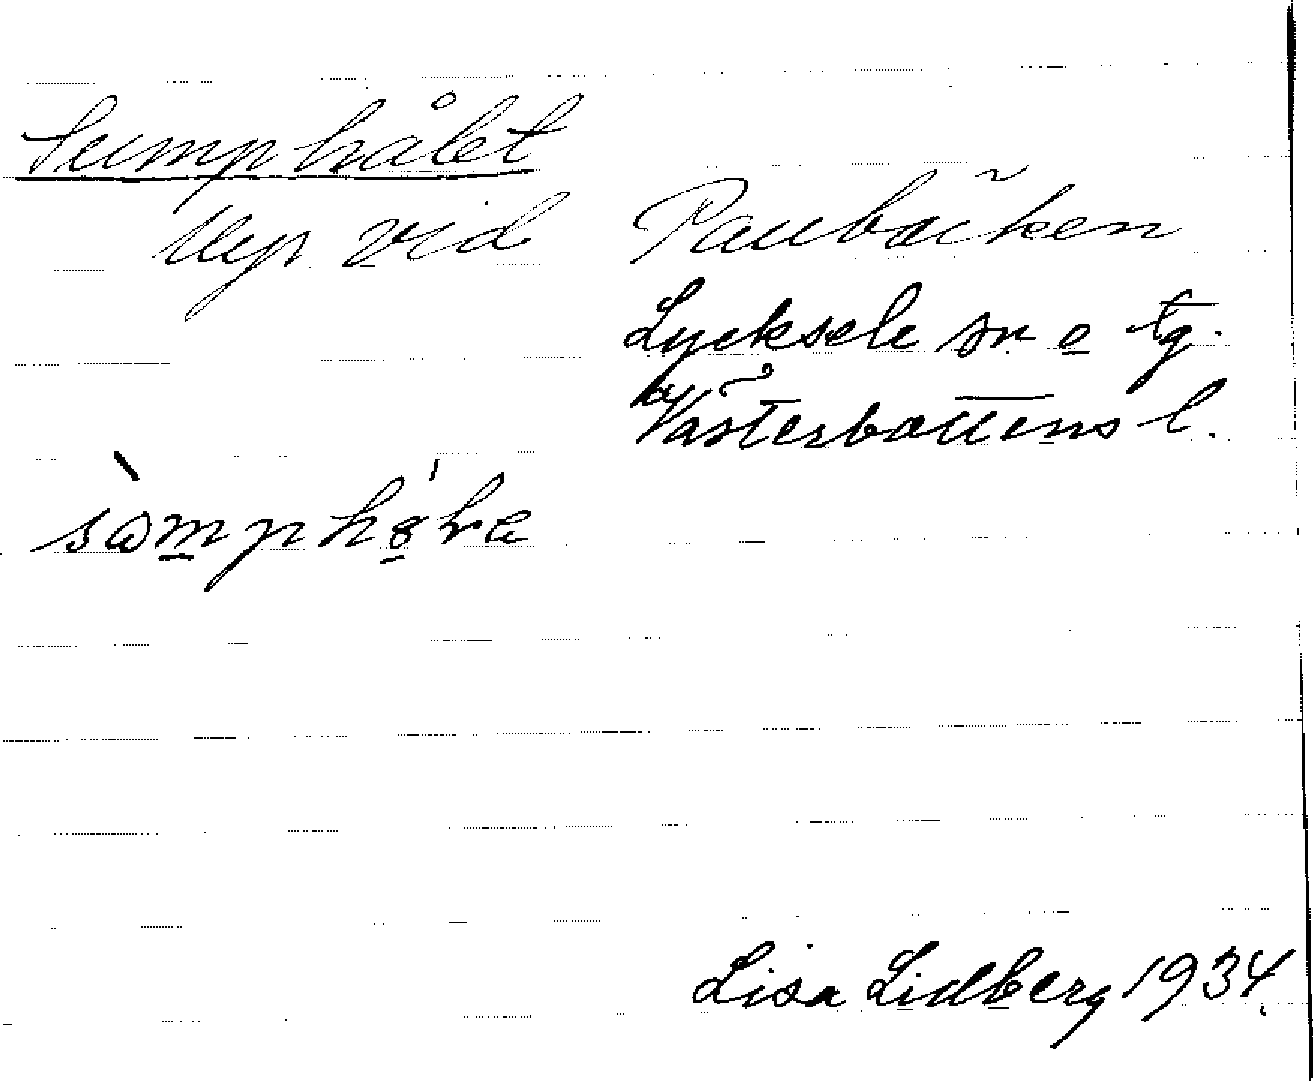 Sumphålet
Myr vid Paubäcken
Lycksele sn o tg.
Västerbottens l.
Lisa Lidberg 1934.